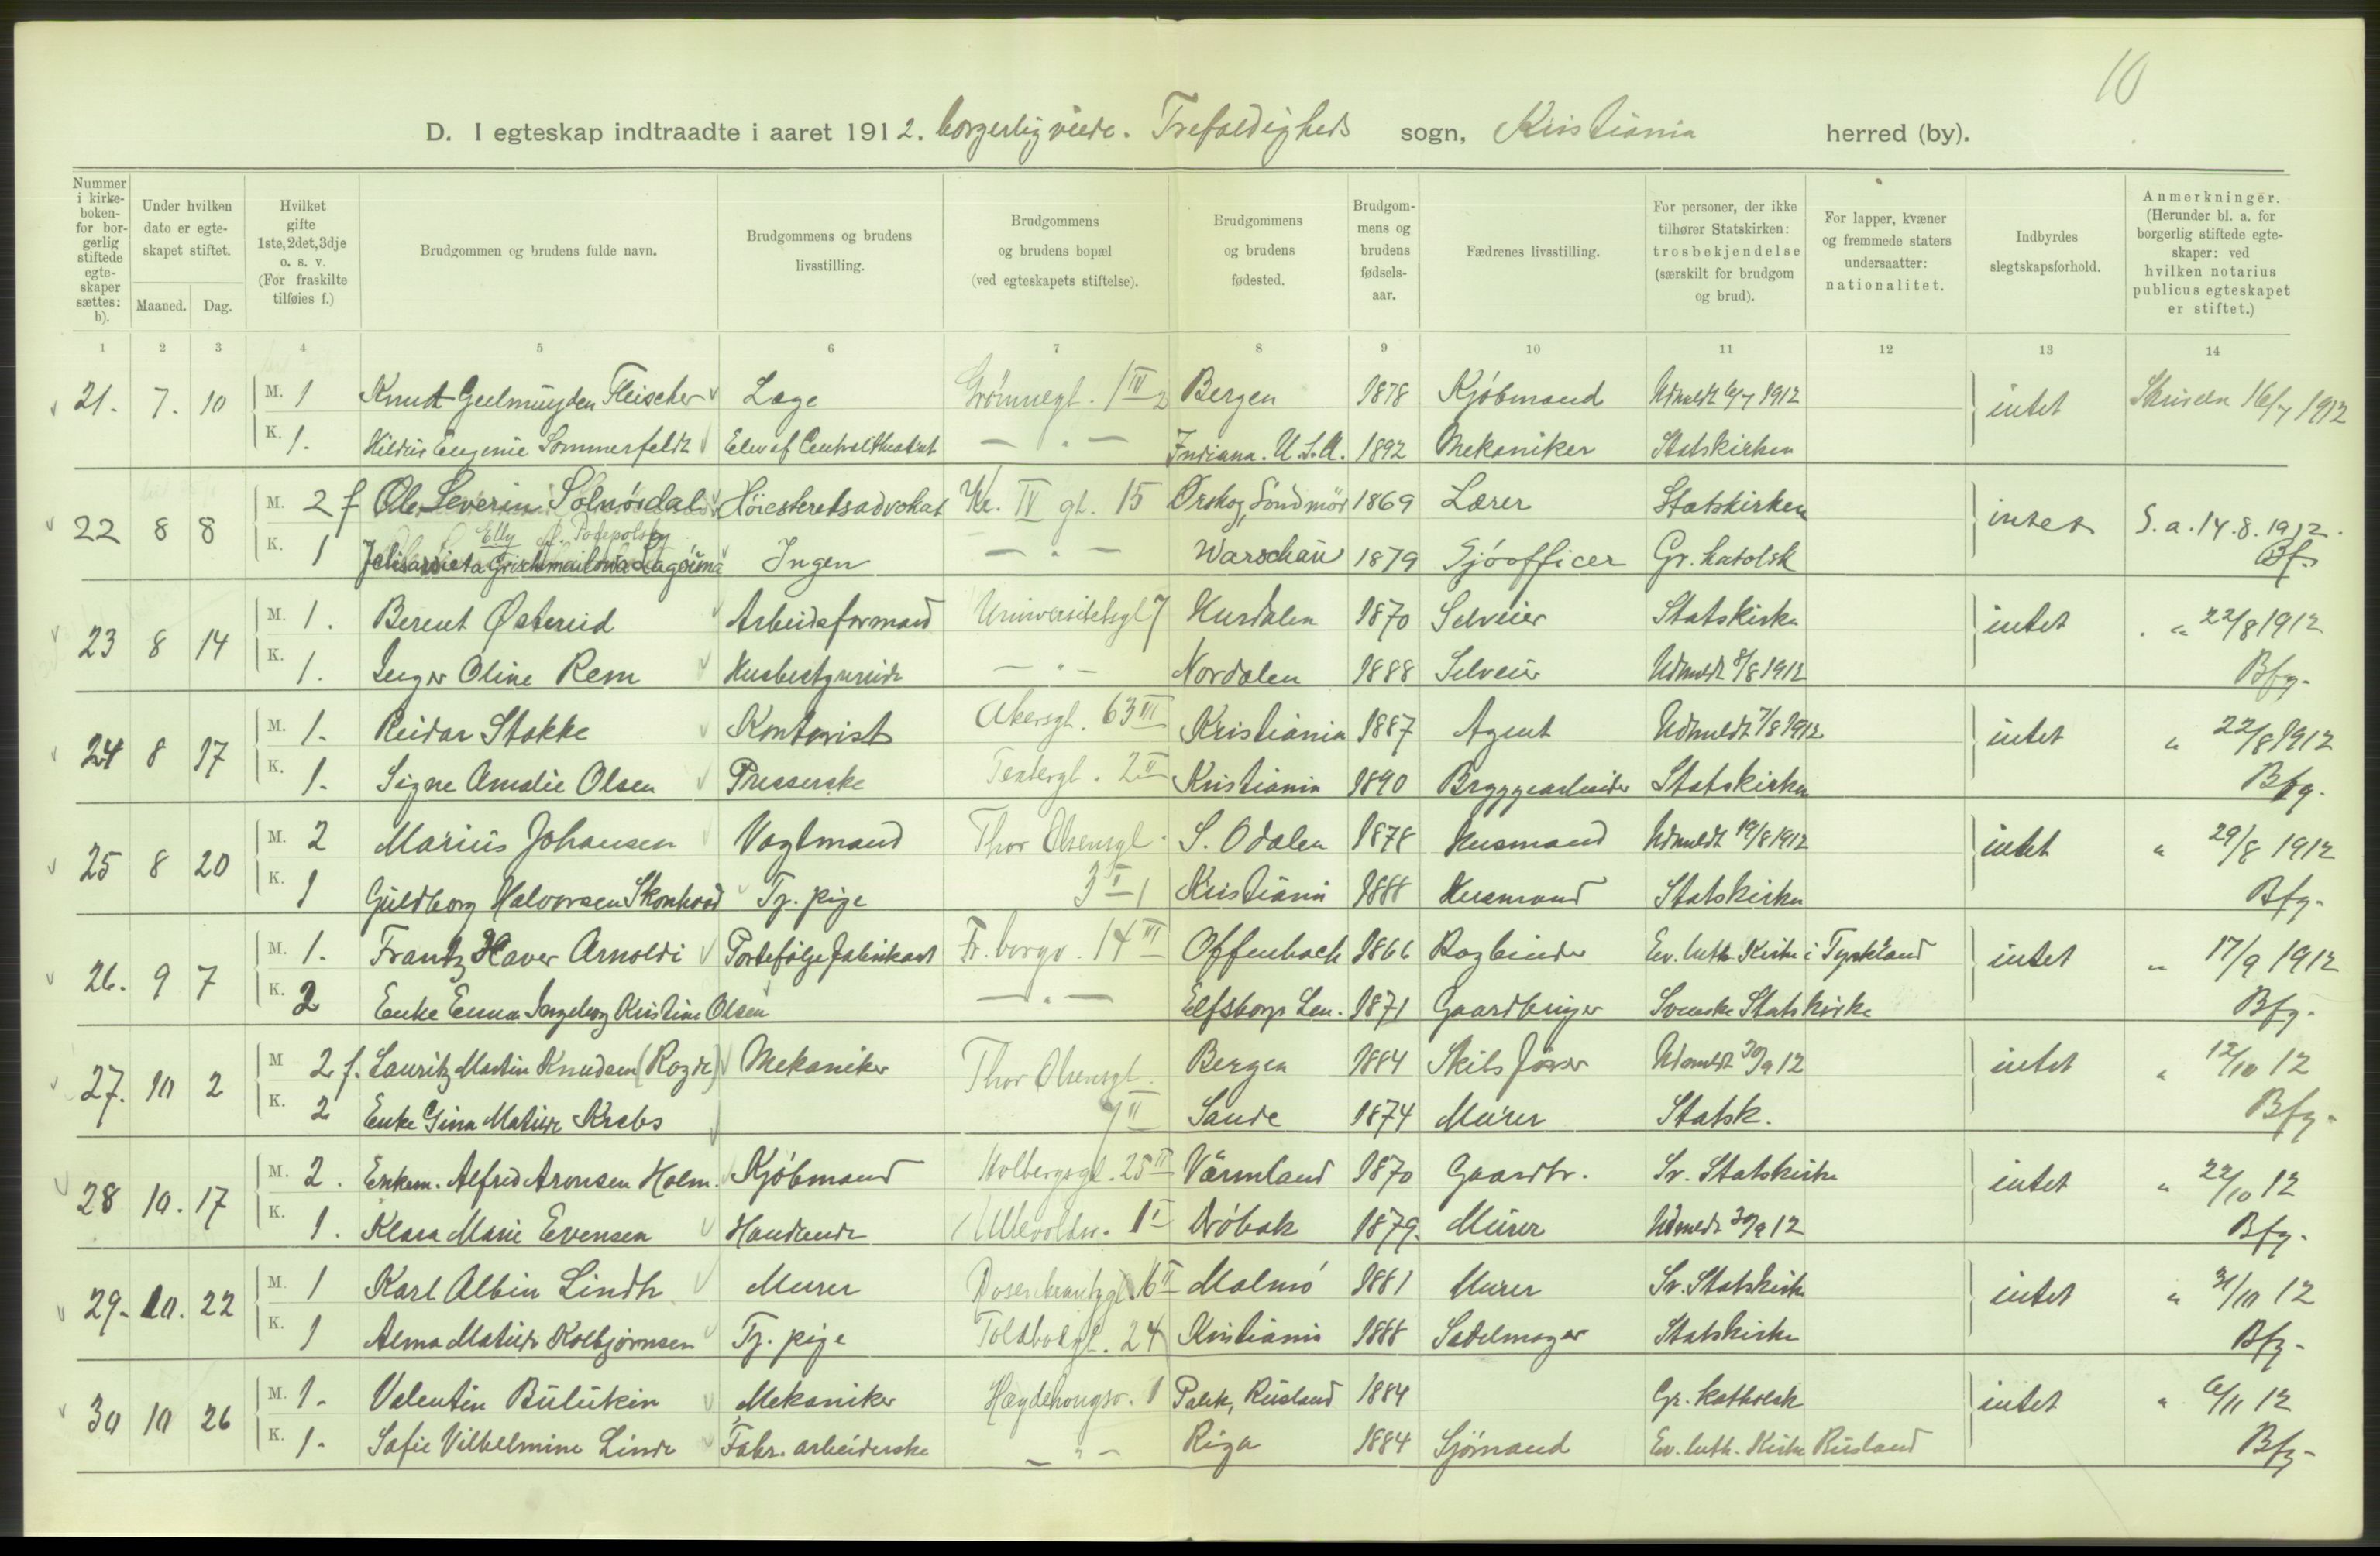 10
D. I egteskap indtraadte i aaret 1912. borgerlig viede. Trefoldigheds sogn, Kristiania herred (by).
Nummer i kirke-boken- for bor-gerlig stiftede egte-skaper sættes: b).
Under hvilken dato er egte-skapet stiftet.
Maaned. Dag.
Hvilket gifte 1ste, 2det, 3dje o. s. v. (For fraskilte tilføies f.)
Brudgommen og brudens fulde navn.
Brudgommens og brudens livsstilling.
Brudgommens og brudens bopæl (ved egteskapets stiftelse).
Brudgommens og brudens fødested.
Brudgom-mens og brudens fødsels-aar.
Fædrenes livsstilling.
For personer, der ikke tilhører Statskirken: trosbekjendelse (særskilt for brudgom og brud).
For lapper, kvæner og fremmede staters undersaatter: nationalitet.
Indbyrdes slegtskapsforhold.
Anmerkninger. (Herunder bl. a. for borgerlig stiftede egte-skaper: ved hvilken notarius publicus egteskapet er stiftet.)
1 2 3 4 5 6 7 8 9 10 11 12 13 14
21. 7. 10 M. 1 Knut Geelmuyden Fleischer Læge Grønnegt. 1 IV 2 Bergen 1878 Kjøbmand Udmeldt 6/7 1912 intet Skiven 16/7 1912
K. 1. Hildur Eugenie Sommerfeldt Elev af Centraltheatret — " — Indiana. U.S.A. 1892 Mekaniker Statskirken
22 8 8 M. 2 f Ole Severin Solnørdal Høiesteretsadvokat Kr. IV gt. 15 Ørskog, Søndmør 1869 Lærer Statskirken intet S. a. 14.8.1912.
Elly f. Podepolsky
K. 1 Jelisawieta Ingen — " — Warschau 1879 Sjøofficer Gr. katolsk Bf.
23 8 14 M. 1. Berent Østereid Arbeidsformand Universitetsgt 7 Hurdalen 1870 Selveier Statskirke intet " 22/8 1912
K. 1. Inger Oline Rem Husbestyrerinde — " — Nordalen 1888 Selveier Udmeldt 8/8 1912 Bfg.
24 8 17 M. 1. Reidar Stokke Kontorist Akersgt. 63 III Kristiania 1887 Agent Udmeldt 7/8 1912 intet " 22/8 1912
K. 1. Signe Amalie Olsen Presserske 2 II Kristiania 1890 Bryggearbeider Statskirken Bfg.
25 8 20 M. 2 Marius Johansen Vagtmand Thor Olsensgt. S. Odalen 1878 Husmand Udmeldt 19/8 1912 intet " 29/8 1912
K. 1 Guldborg Halvorsen Skonhovd Tj. pige 3 I 1 Kristiania 1888 Husmand Statskirken Bfg.
26. 9 7 M. 1. Frantz Xaver Arnoldi Portefølgefabrikant Fr. borgv. 14 III Offenbach 1866 Bogbinder Ev. luth. Kirke i Tyskland intet " 17/9 1912
K. 2 Enke Emma Ingeborg Kristine Olsen — " — Elfsborgs Len. 1871 Gaardbruger Svenske Statskirke Bfg.
27. 10 2 M 2 f. Lauritz Martin Knudsen (Rogde) Mekaniker Thor Olsensgt. Bergen 1884 Skibsfører Udmeldt 30/9 12 intet " 12/10 12
K. 2 Enke Gina Matilde Krebs 7 II Sande 1874 Murer Statsk. Bfg.
28 10. 17 M. 2. Enkem. Alfred Aronsen Holm. Kjøbmand Holbergsgt. 25 II Värmland 1870 Gaardbr. Sv. Statskirke intet " 22/10 12
K. 1. Klara Marie Evensen Handlende Ullevoldsv. 1 I Drøbak 1879. Murer Udmeldt 30/9 12 Bfg.
29. 10. 22 M. 1 Karl Albin Lindh Murer Rosenkrantzgt. 6 II Malmø 1881 Murer Sv. Statskirke intet " 31/10 12
K. 1 Alma Matilde Kolbjørnsen Tj. pige Toldbodgt. 24 Kristiania 1888 Sadelmager Statskirke Bfg.
30 10 26 M. 1. Valentin Bulukin Mekaniker Hægdehougsv. 1 Palek, Rusland 1884 Gr. katholsk intet " 6/11 12
K. 1. Sofie Vilhelmine Linde Fabr. arbeiderske — " — Riga 1884 Sjømand Ev. luth. Kirke Rusland Bfg.